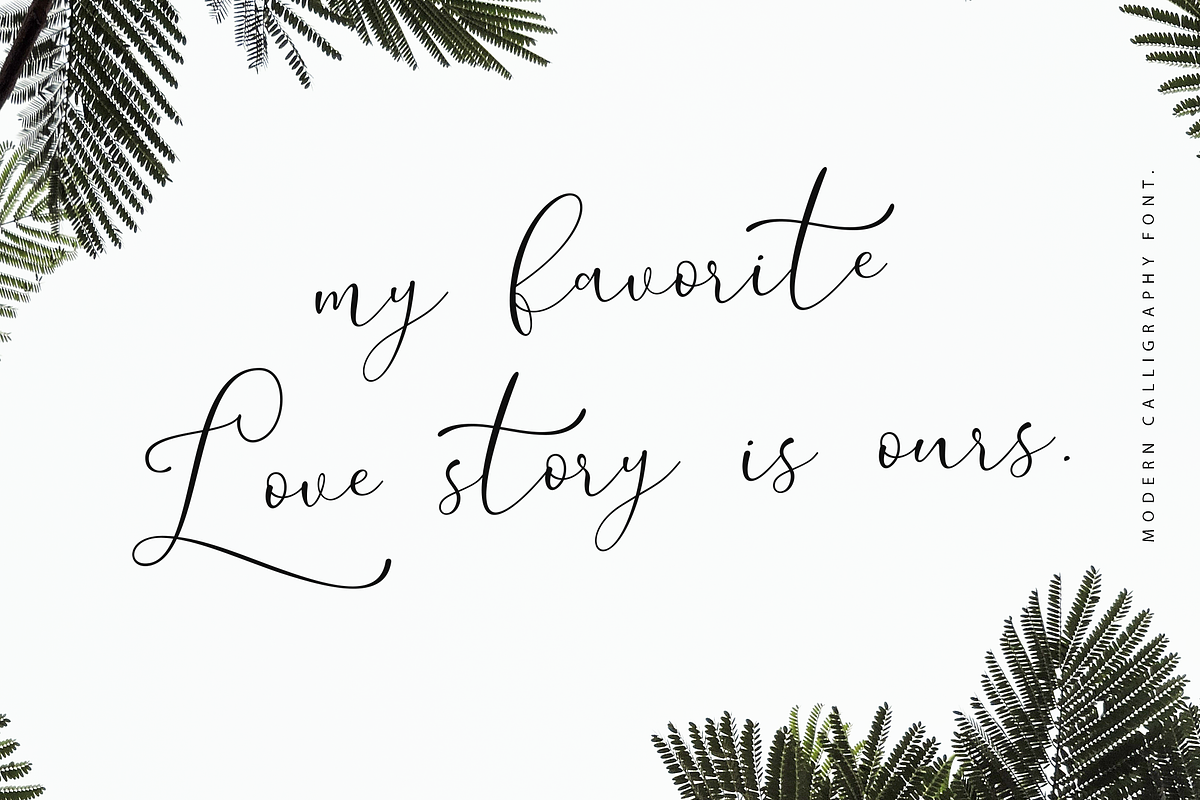 my favorite
Love story is ours.
MODERN CALLIGRAPHY FONT.